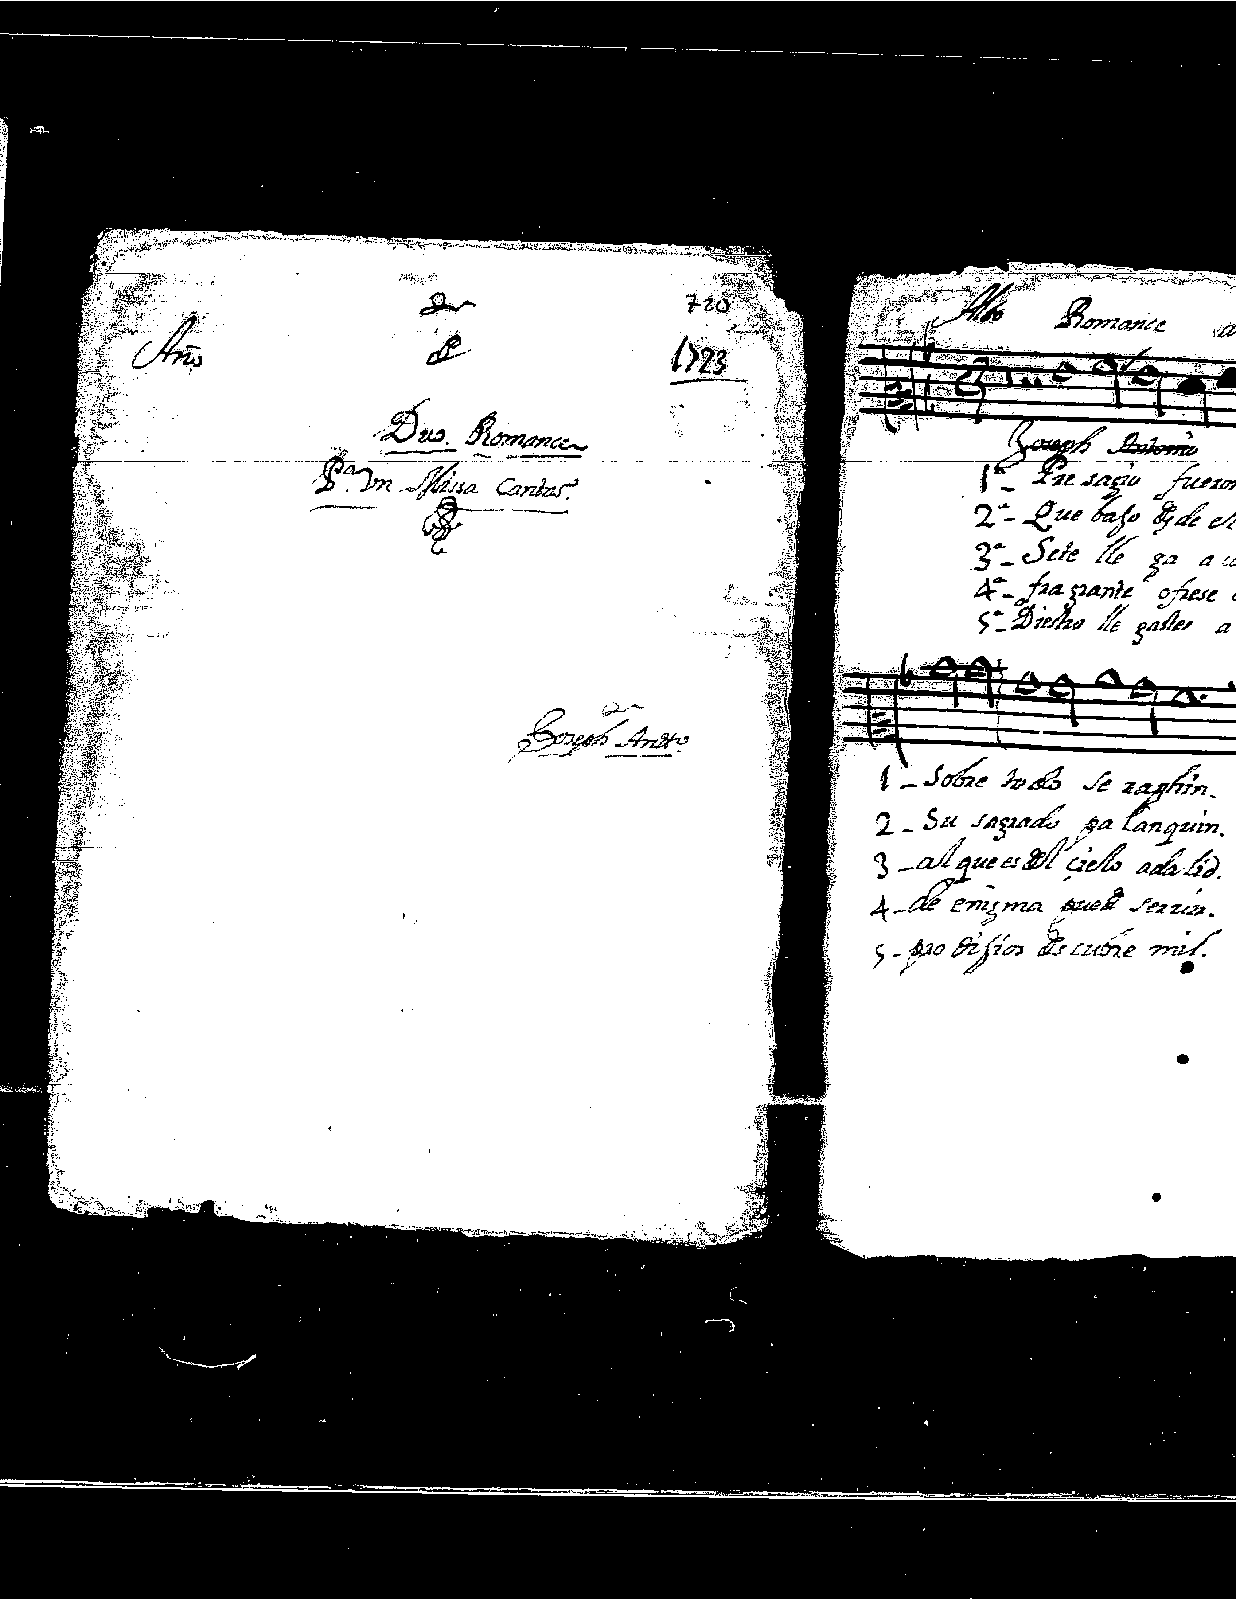 720
Año de 1723
Duo. Romance
Pª. Un Missa Cantar.
Joseph Antº
Alto Romance a
Joseph Antonio
1ª - Presagio fueron
2ª - Que baso
3ª - Sete lle ga a
4ª - fragrante ofrese
5ª - Diestro lle gastes a
1 - Sobre todo se
2 - Su sagrado pa lanquin.
3 - al que es del cielo ada lid.
4 - de enigma puede servir.
5 - pro disios descubre mil.